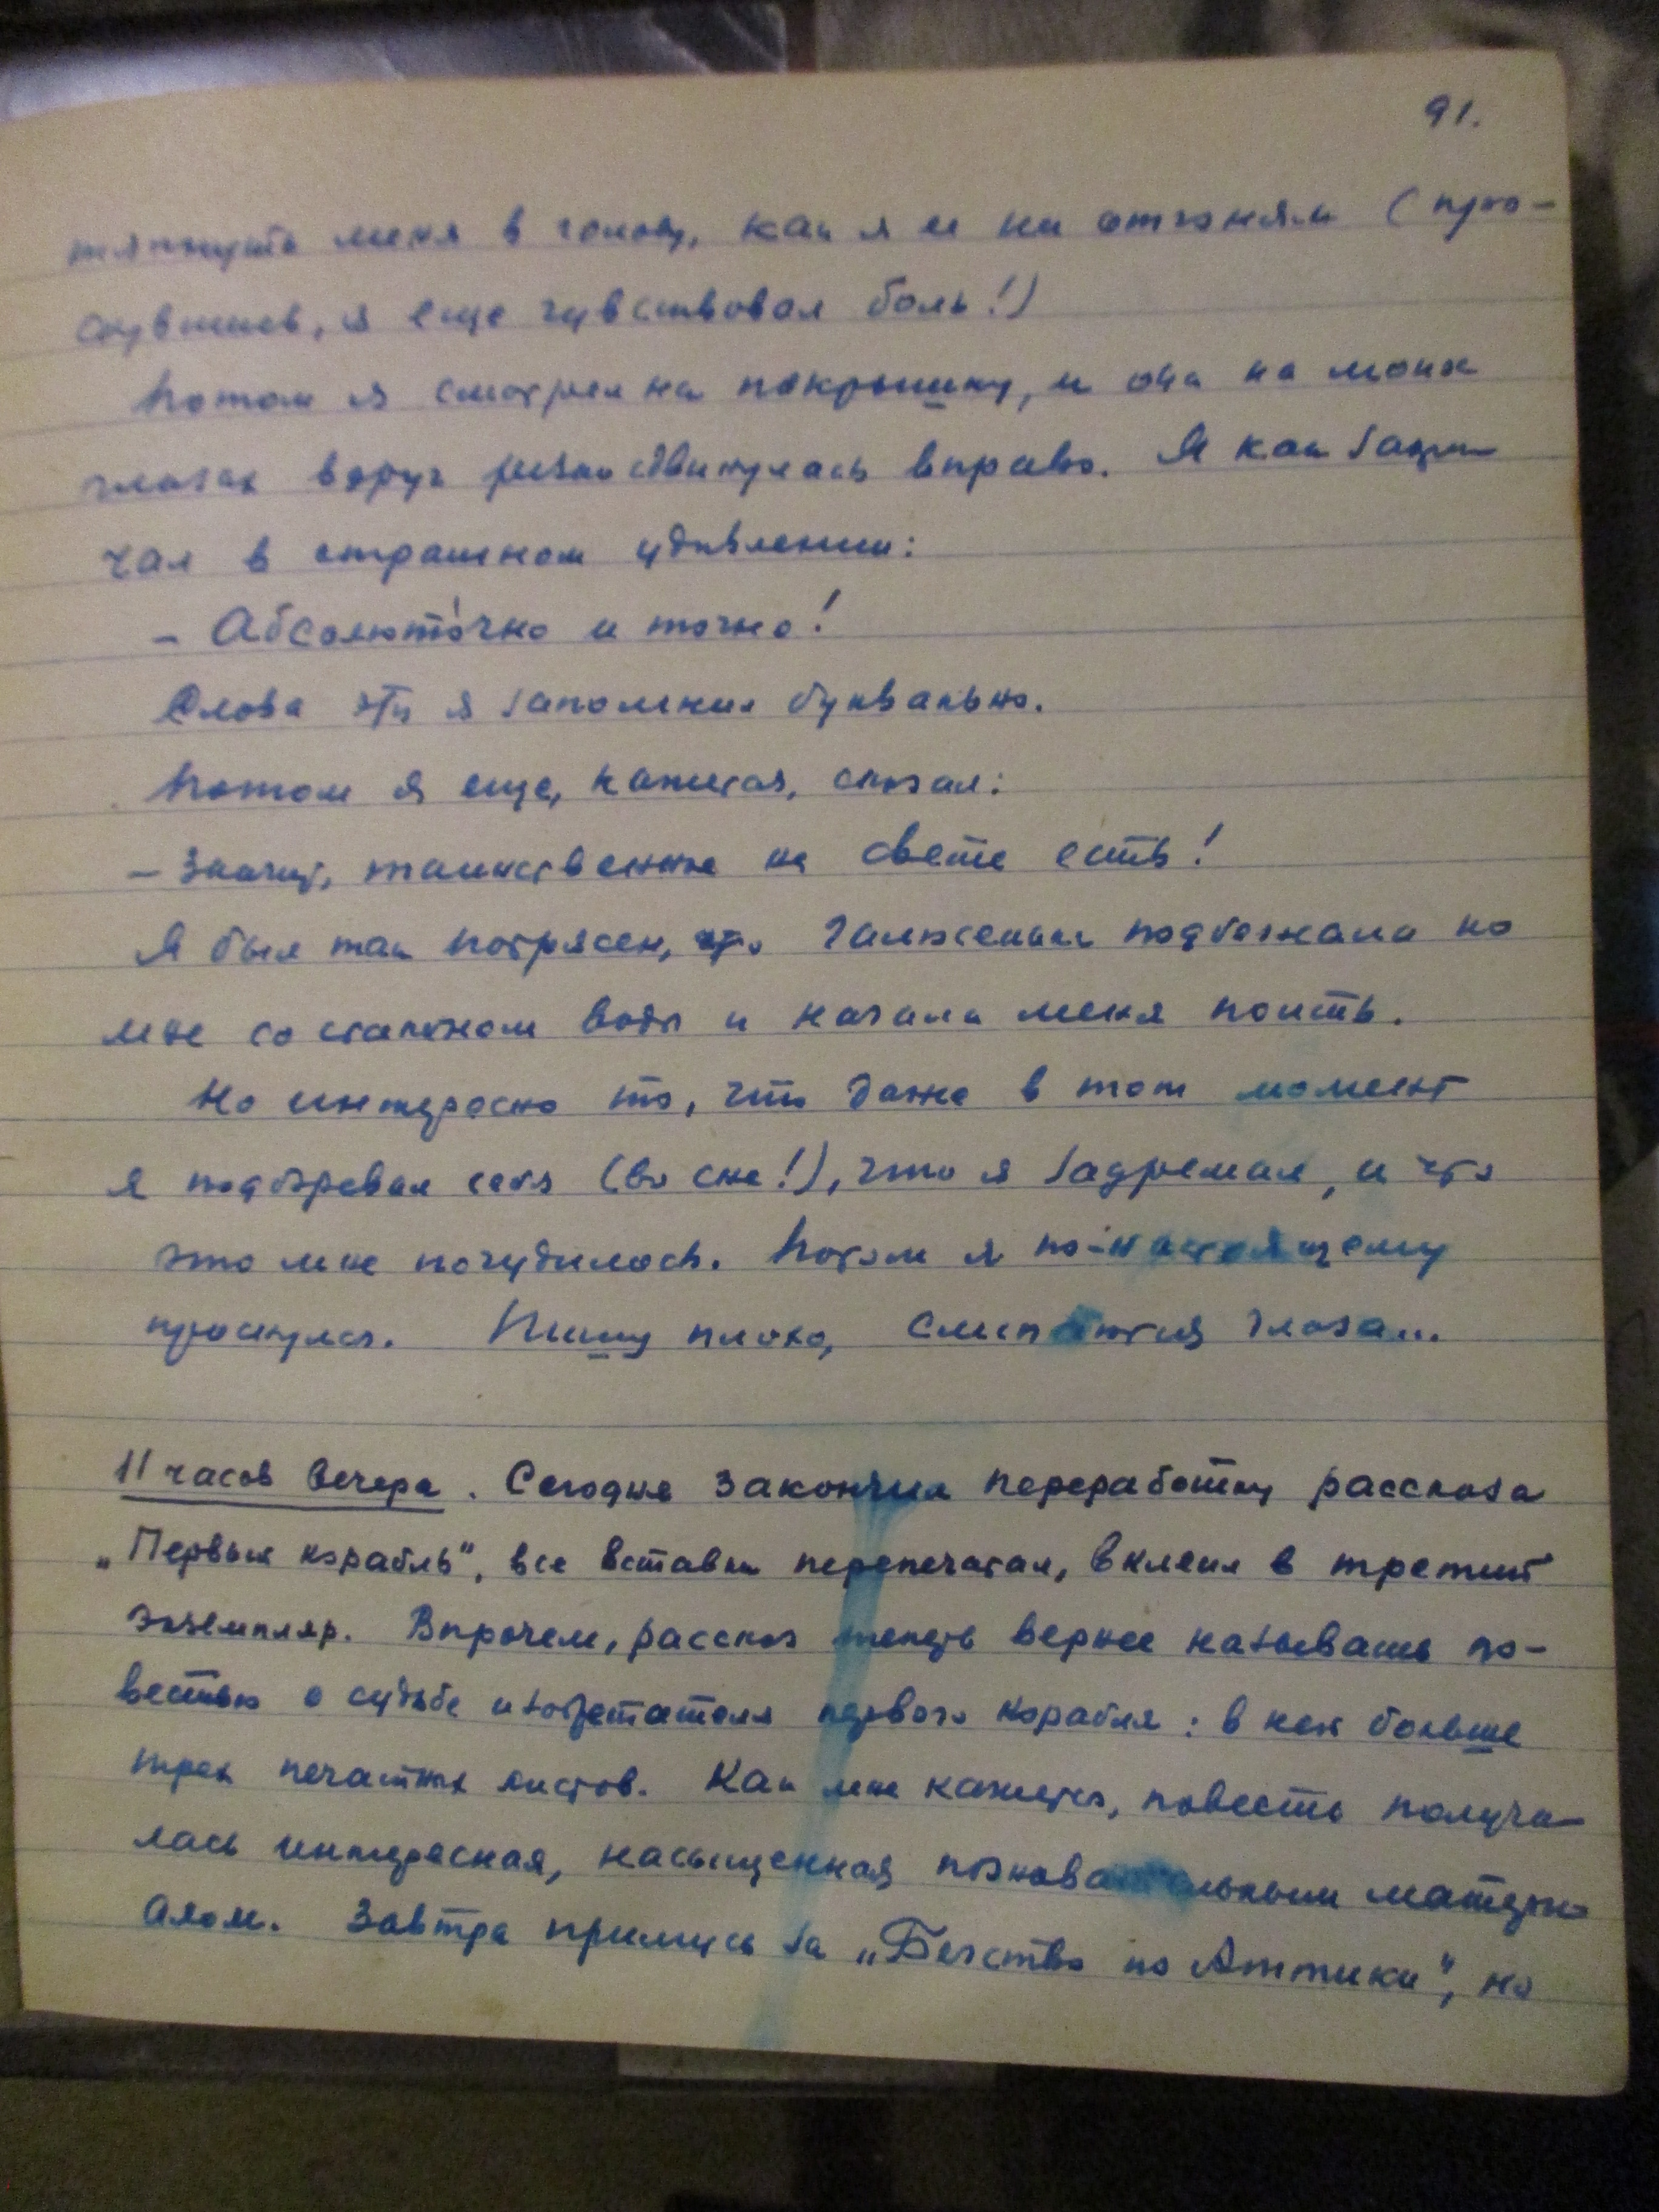 91.
тяпнула меня в голову, как я ее ни отгонял (про-
снувшись, я еще чувствовал боль!)
Потом я смотрел на покрышку, и она на моих
глазах вдруг резко сдвинулась вправо. Я как закри-
чал в страшном удивлении:
– Абсолюто́чно и точно!
Слова эти я запомнил буквально.
Потом я еще, кажется, сказал:
– Значит, таинственное на свете есть!
Я был так потрясен, что Галюженька подбежала ко
мне со стаканом воды и начала меня поить.
Но интересно то, что даже в тот момент
я подозревал себя (во сне!), что я задремал, и что
это мне почудилось. Потом я по-настоящему
проснулся. Пишу плохо, слипаются глаза...
11 часов вечера. Сегодня закончил переработку рассказа
„Первый корабль", все вставки перепечатал, вклеил в третий
экземпляр. Впрочем, рассказ теперь вернее называть по-
вестью о судьбе изобретателя первого корабля: в нем больше
трех печатных листов. Как мне кажется, повесть получи-
лась интересная, насыщенная познавательным матери-
алом. Завтра примусь за „Бегство из Аттики", но